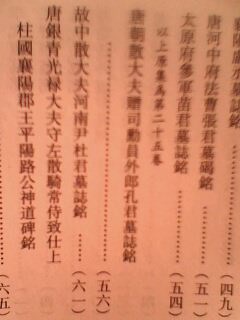 襄陽盧丞墓誌銘……（四九）
唐河中府法曹張君墓碣銘……（五一）
太原府參軍苗君墓誌銘……（五四）
以上原集為第二十五卷
唐朝散大夫贈司勳員外郎孔君墓誌銘……（五六）
故中散大夫河南尹杜君墓誌銘……（六一）
唐銀青光祿大夫守左散騎常侍致仕上
柱國襄陽郡王平陽路公神道碑銘……（六五）